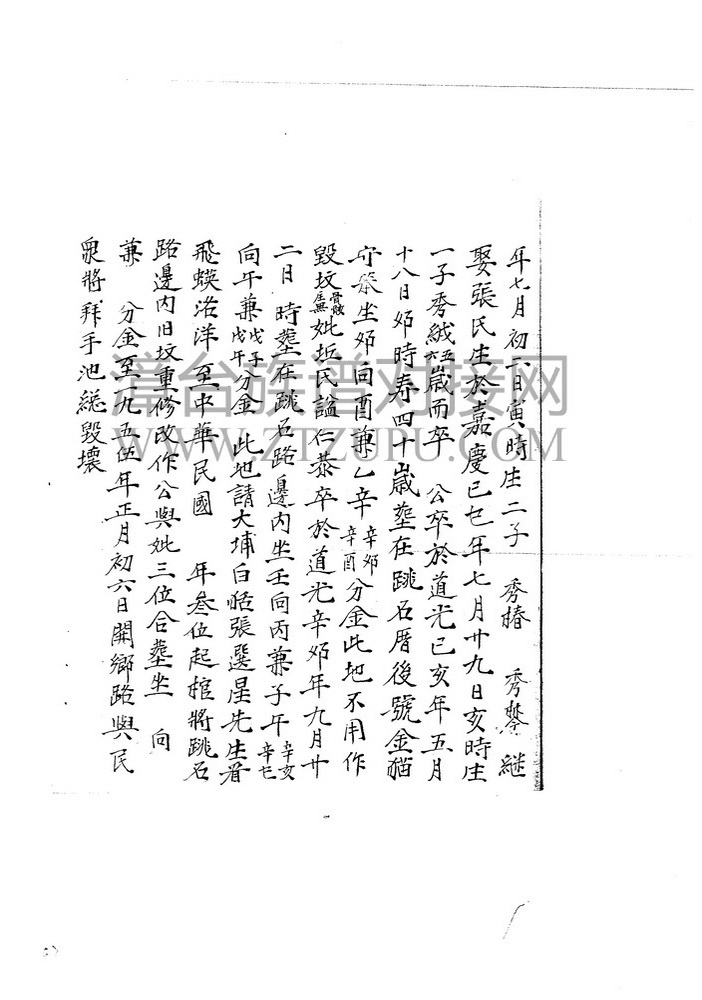 年七月初一日寅時生二子　秀椿　秀馨継
娶張氏生於嘉慶己巳年七月廿九日亥時生
一子秀絨五六歲而卒　公卒於道光己亥年五月
十八日夘時寿四十歲塟在跳石厝後號金猫
守桊坐夘向酉兼乙辛辛夘辛酉分金此地不用作
毀坟骨骸妣坵民諡仁恭卒於道光辛夘年九月廿
二日　時塟在跳石路邊内坐壬向丙兼子午辛亥辛巳
向午兼戊子戊午分金　此地請大埔白恬張選星先生看
飛蟧洺洋至中華民國　年叁位起棺將跳石
路邊内旧坟重修改作公與妣三位合塟坐　向
兼　分金至九五伍年正月初六日開鄉路與民
眾將拜手池総毀壞
潽台族谱对接网
WWW.ZTZUPU.COM